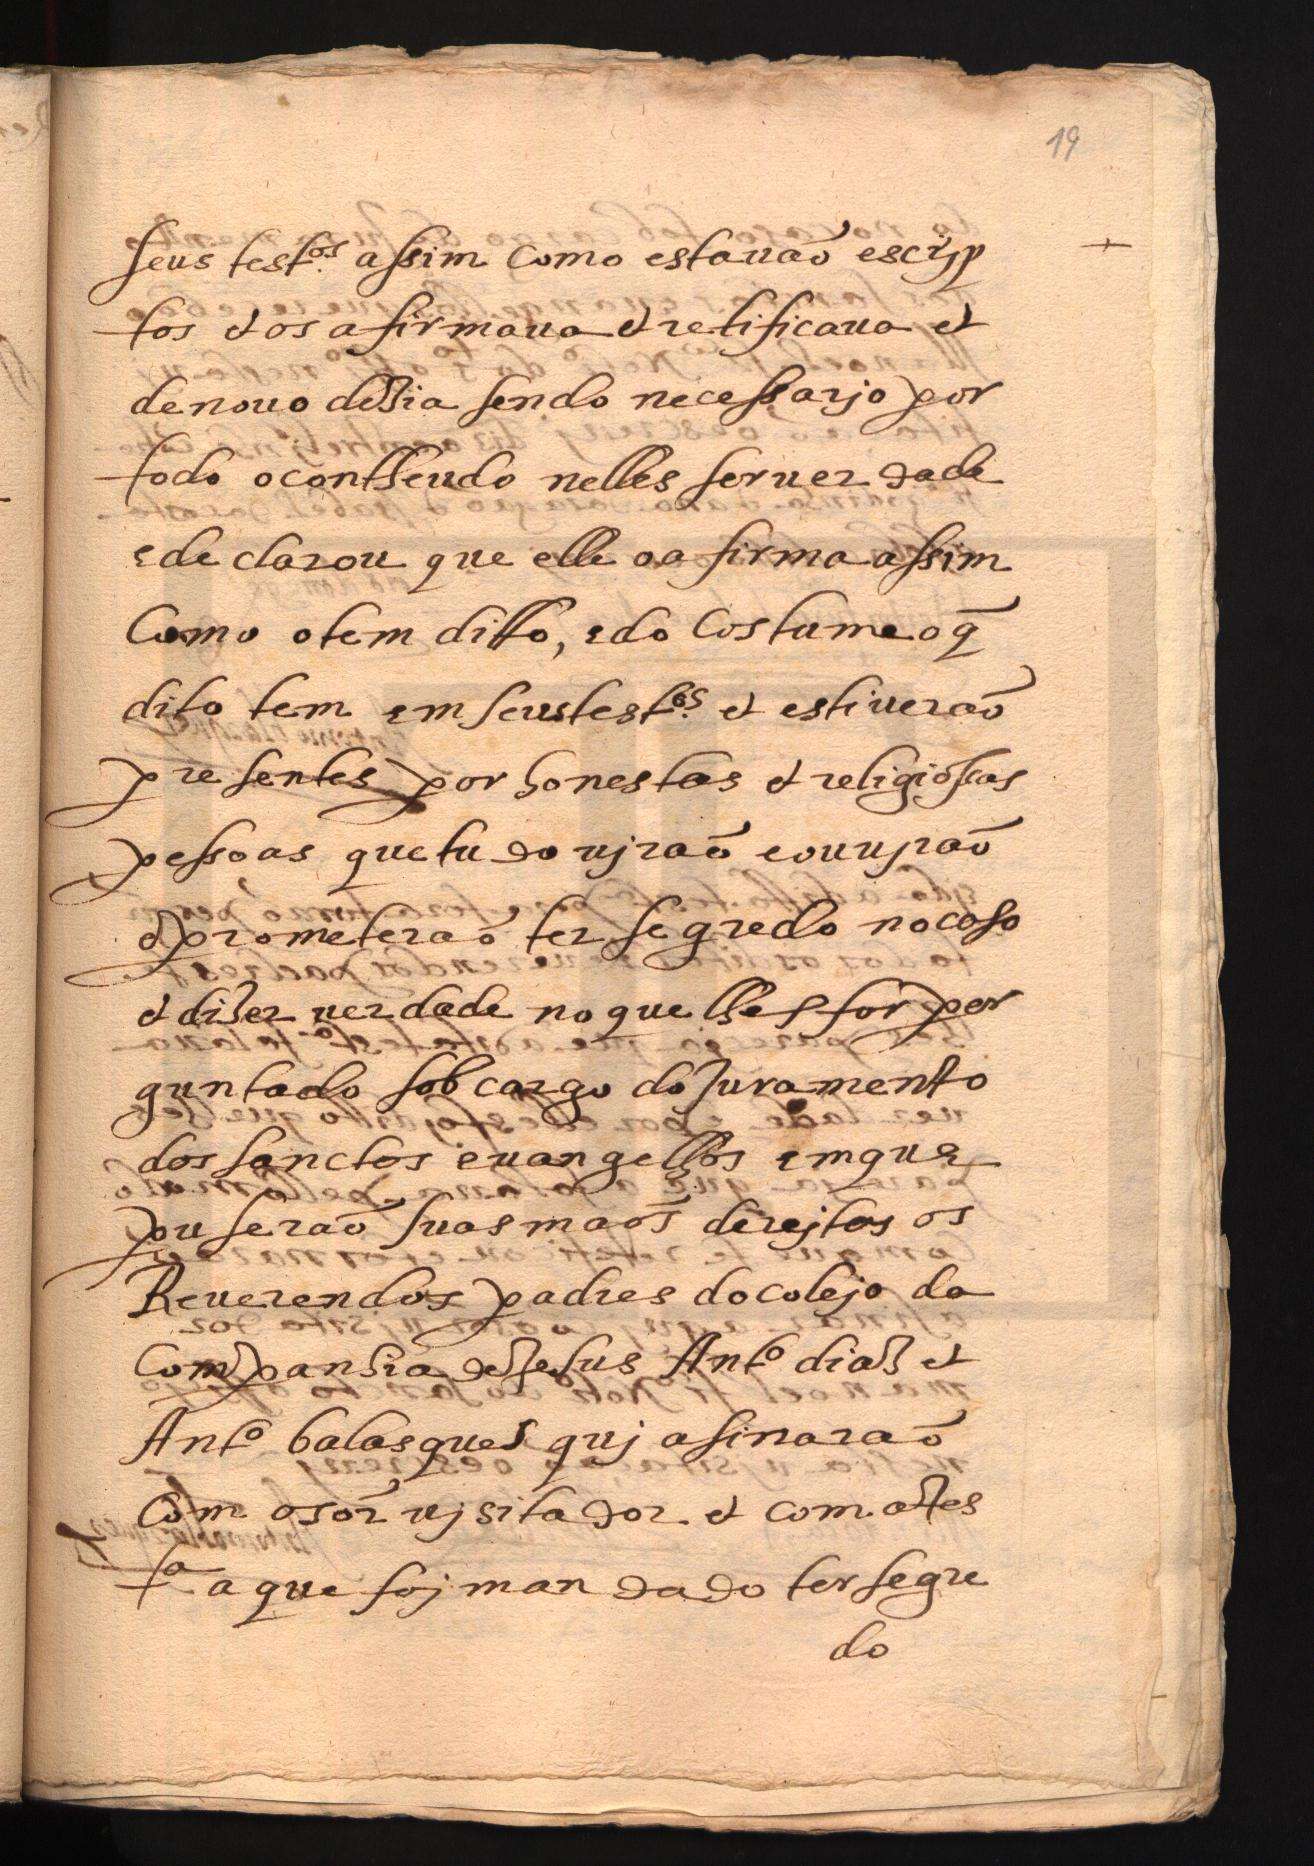 19
seus test.os assim como estauaõ escrip
tos et os afirmaua et retificaua et
de nouo dezia sendo necessarjo por
todo o contheudo nelles ser uerdade
e declarou que elle o afirma assim
Como o tem ditto, e do Costume o q̃
dito tem em seus test.os et estiueraõ
presentes por honestas et religiosas
pessoas que tudo ujraõ e ouujraõ
et prometeraõ ter segredo no caso
et dizer uerdade no que lhes for per
guntado sob cargo do Juramento
dos sanctos euangelhos em que
puseraõ suas maõs derejtas os
Reuerendos padres do colejo da
Companhia de Jesus Ant.o diaz et
Ant.o balasques quj asinaraõ
Com o sõr ujsitador et com a tes
t.a a que foj mandado ter segre
do